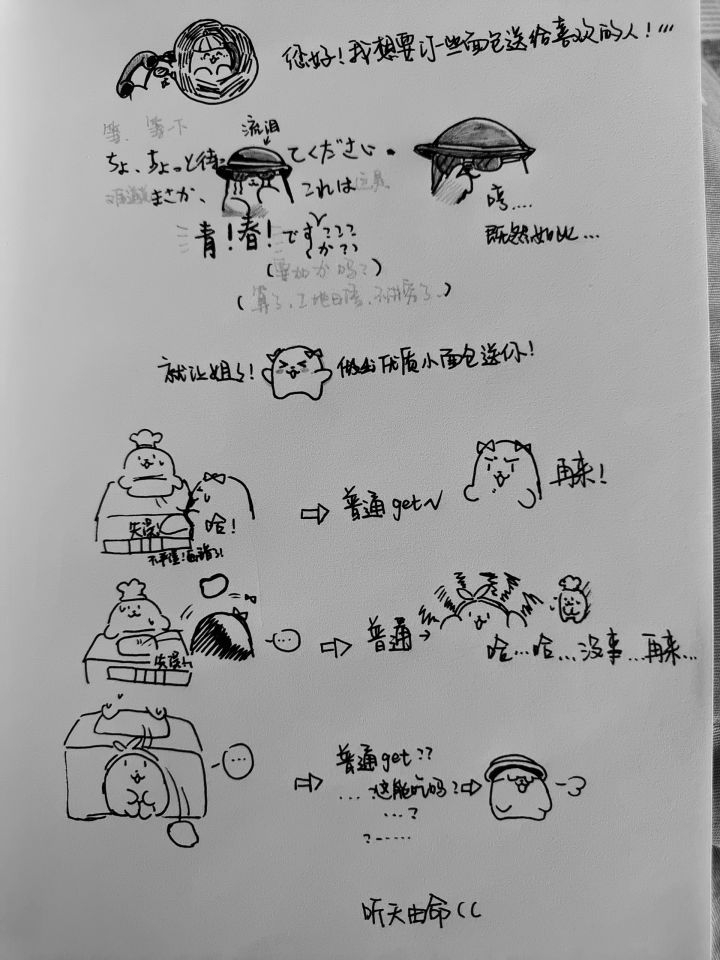 您好！我想要订一些面包送给喜欢的人！
等、等下
流泪
ちょ、ちょっと待ってください。
难道说 まさか、これは 这是
青！春！ですか？？？？？
(要加か吗？)
(算了，工地日语，不讲究了…)
嗬....
既然如此...
就让姐们！做出优质小面包送你！
失误！
哈！
不要慌！
普通get~
再来！
失误！
...
普通
哈...哈...没事...再来...
...
普通get??
...这能吃吗？
...?
?......
听天由命((